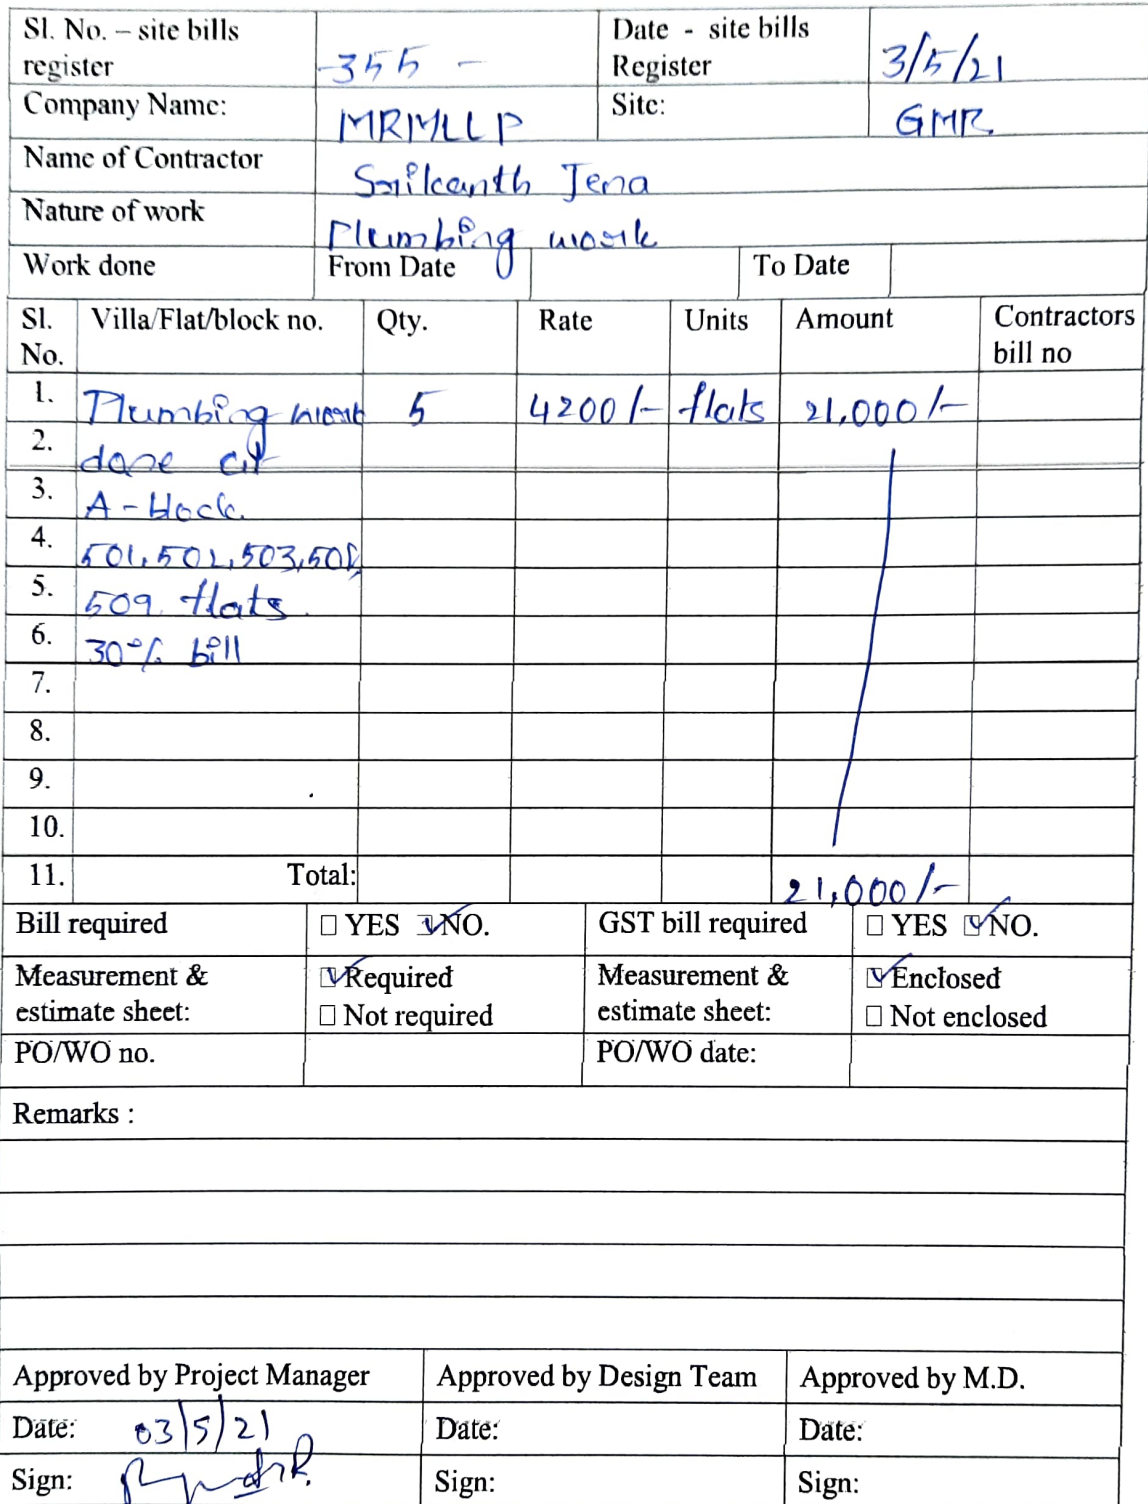 Sl. No. – site bills register -355 - Date - site bills Register 3/5/21
Company Name: MRMLLP Site: GMR.
Name of Contractor Srikanth Jena
Nature of work Plumbing work
Work done From Date To Date
Sl. No. Villa/Flat/block no. Qty. Rate Units Amount Contractors bill no
1. Plumbing work 5 4200/- flats 21,000/-
2. done at
3. A-block.
4. 501,502,503,508,
5. 509. flats.
6. 30% bill
7.
8.
9.
10.
11. Total: 21,000/-
Bill required □ YES ☑ NO. GST bill required □ YES ☑ NO.
Measurement & estimate sheet: ☑ Required □ Not required Measurement & estimate sheet: ☑ Enclosed □ Not enclosed
PO/WO no. PO/WO date:
Remarks :
Approved by Project Manager Approved by Design Team Approved by M.D.
Date: 03/5/21 Date: Date:
Sign: Sign: Sign: